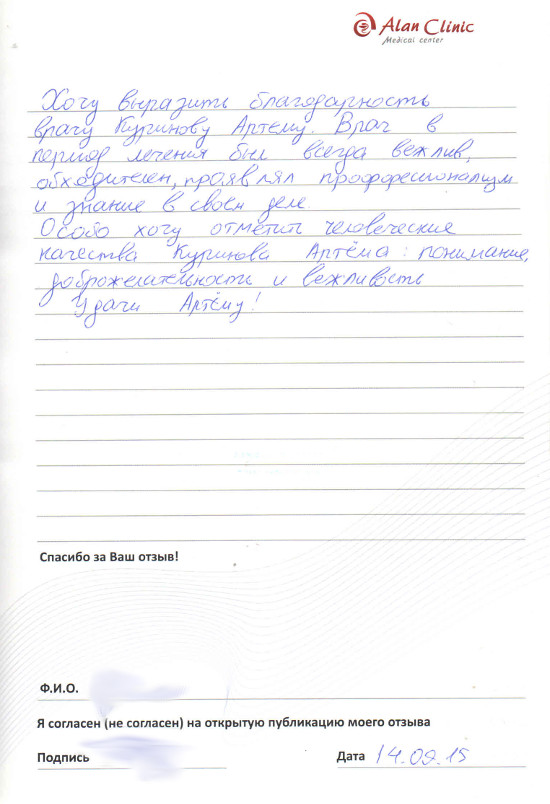 Alan Clinic
Medical center
Хочу выразить благодарность
врачу Куринову Артему. Врач в
период лечения был всегда вежлив,
обходителен, проявлял профффесионализм
и знание в своем деле.
Особо хочу отметить человеческие
качества Куринова Артёма: понимание,
доброжелательность и вежливсть
Удачи Артёму!
Спасибо за Ваш отзыв!
Ф.И.О.
Я согласен (не согласен) на открытую публикацию моего отзыва
Подпись Дата 14.09.15